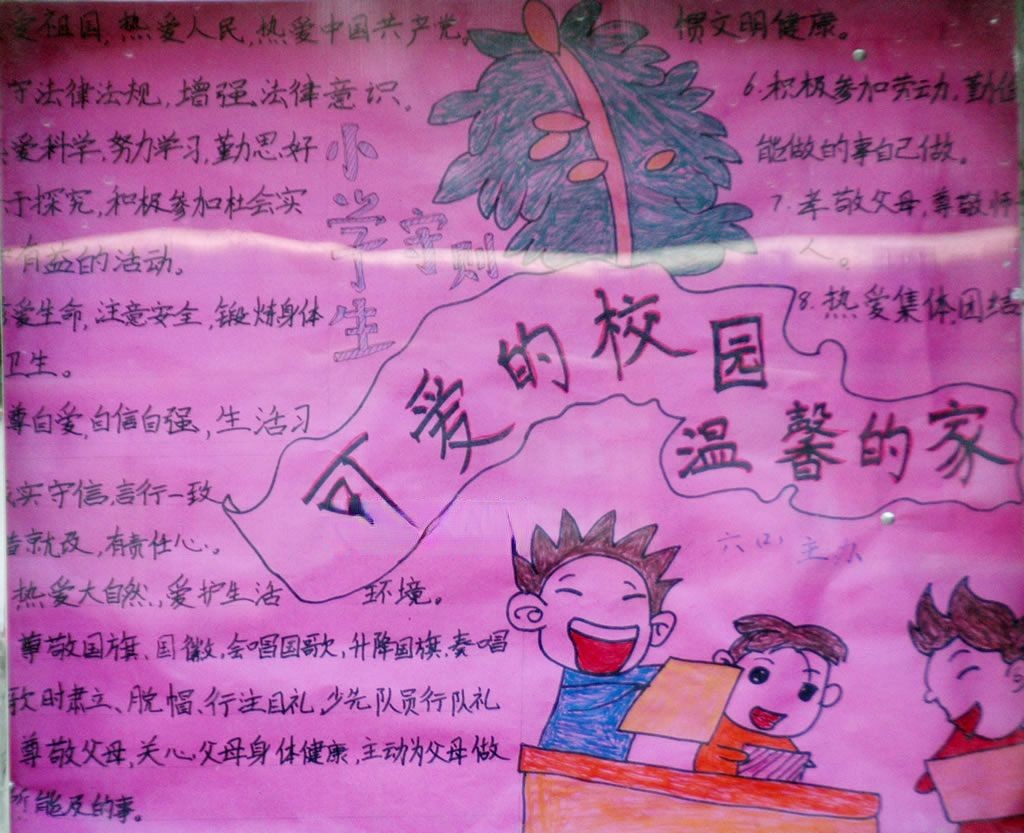 爱祖国,热爱人民,热爱中国共产党。
守法律法规,增强法律意识。
爱科学,努力学习,勤思好
于探究,积极参加社会实
有益的活动。
爱生命,注意安全,锻炼身体
卫生。
尊自爱,自信自强,生活习
惯文明健康。
6.积极参加劳动,勤俭
能做的事自己做。
7.孝敬父母,尊敬师
人。
8.热爱集体,团结
小学生
守则
可爱的校园
温馨的家
实守信,言行一致
就改,有责任心。
热爱大自然,爱护生活环境。
尊敬国旗、国徽,会唱国歌,升降国旗、奏唱
歌时肃立、脱帽、行注目礼,少先队员行队礼
尊敬父母,关心父母身体健康,主动为父母做
所能及的事。
主办